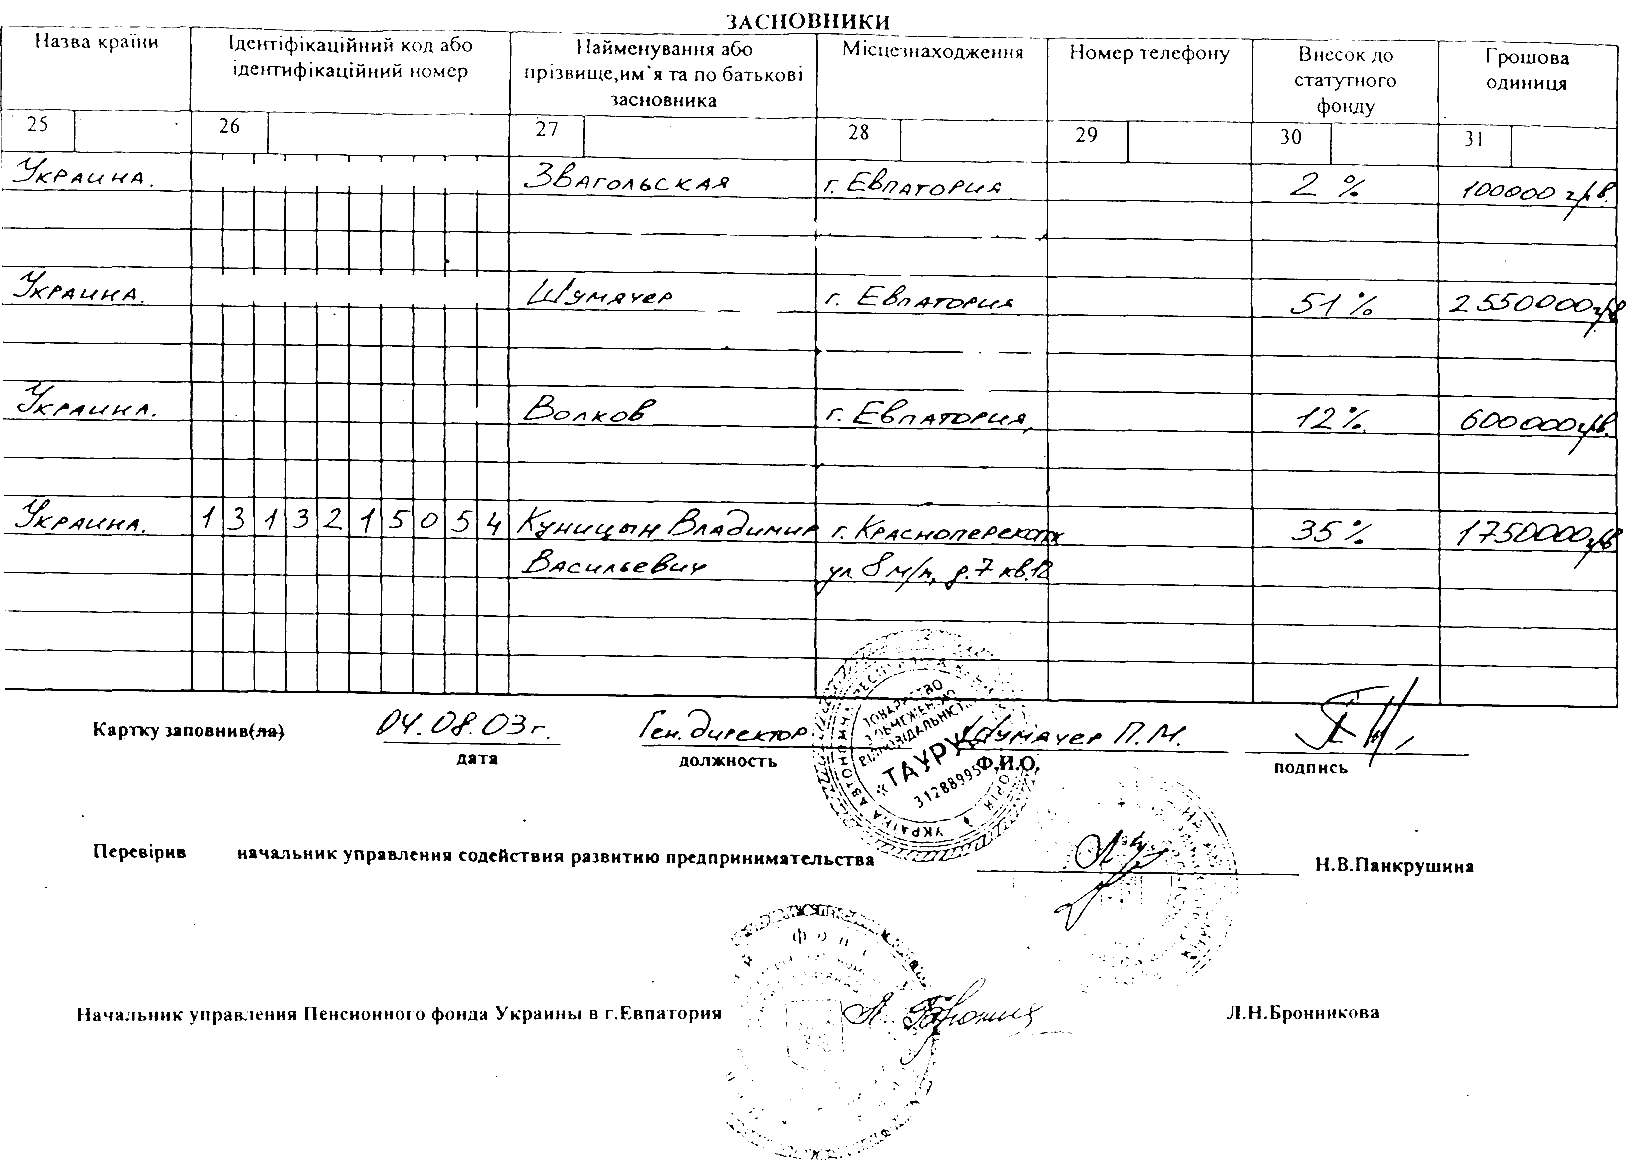 ЗАСНОВНИКИ
Назва країни
Ідентіфікаційний код або
ідентифікаційний номер
Найменування або
прізвище,им`я та по батькові
засновника
Місцезнаходження
Номер телефону
Внесок до
статутного
фонду
Грошова
одиниця
25 26 27 28 29 30 31
Украина. Звагольская г. Евпатория 2 % 100000 грв.
Украина. Шумачер г. Евпатория 51 % 2550000грв
Украина. Волков г. Евпатория, 12 %. 600000грв.
Украина. 1 3 1 3 2 1 5 0 5 4 Куницын Владимир г. Красноперекопск 35 % 1750000грв
Васильевич ул 8 м/н, д.7 кв.12
Картку заповнив(ла) 04.08.03г. Ген.директор Шумачер П.М.
дата должность Ф.И.О. подпись
ТОВАРИСТВО
З ОБМЕЖЕНОЮ
ВІДПОВІДАЛЬНІСТЮ
УКРАЇНА АВТОНОМН
Перевірив начальник управления содействия развитию предпринимательства Н.В.Панкрушина
фон
Начальник управления Пенсионного фонда Украины в г.Евпатория Л.Н.Бронникова